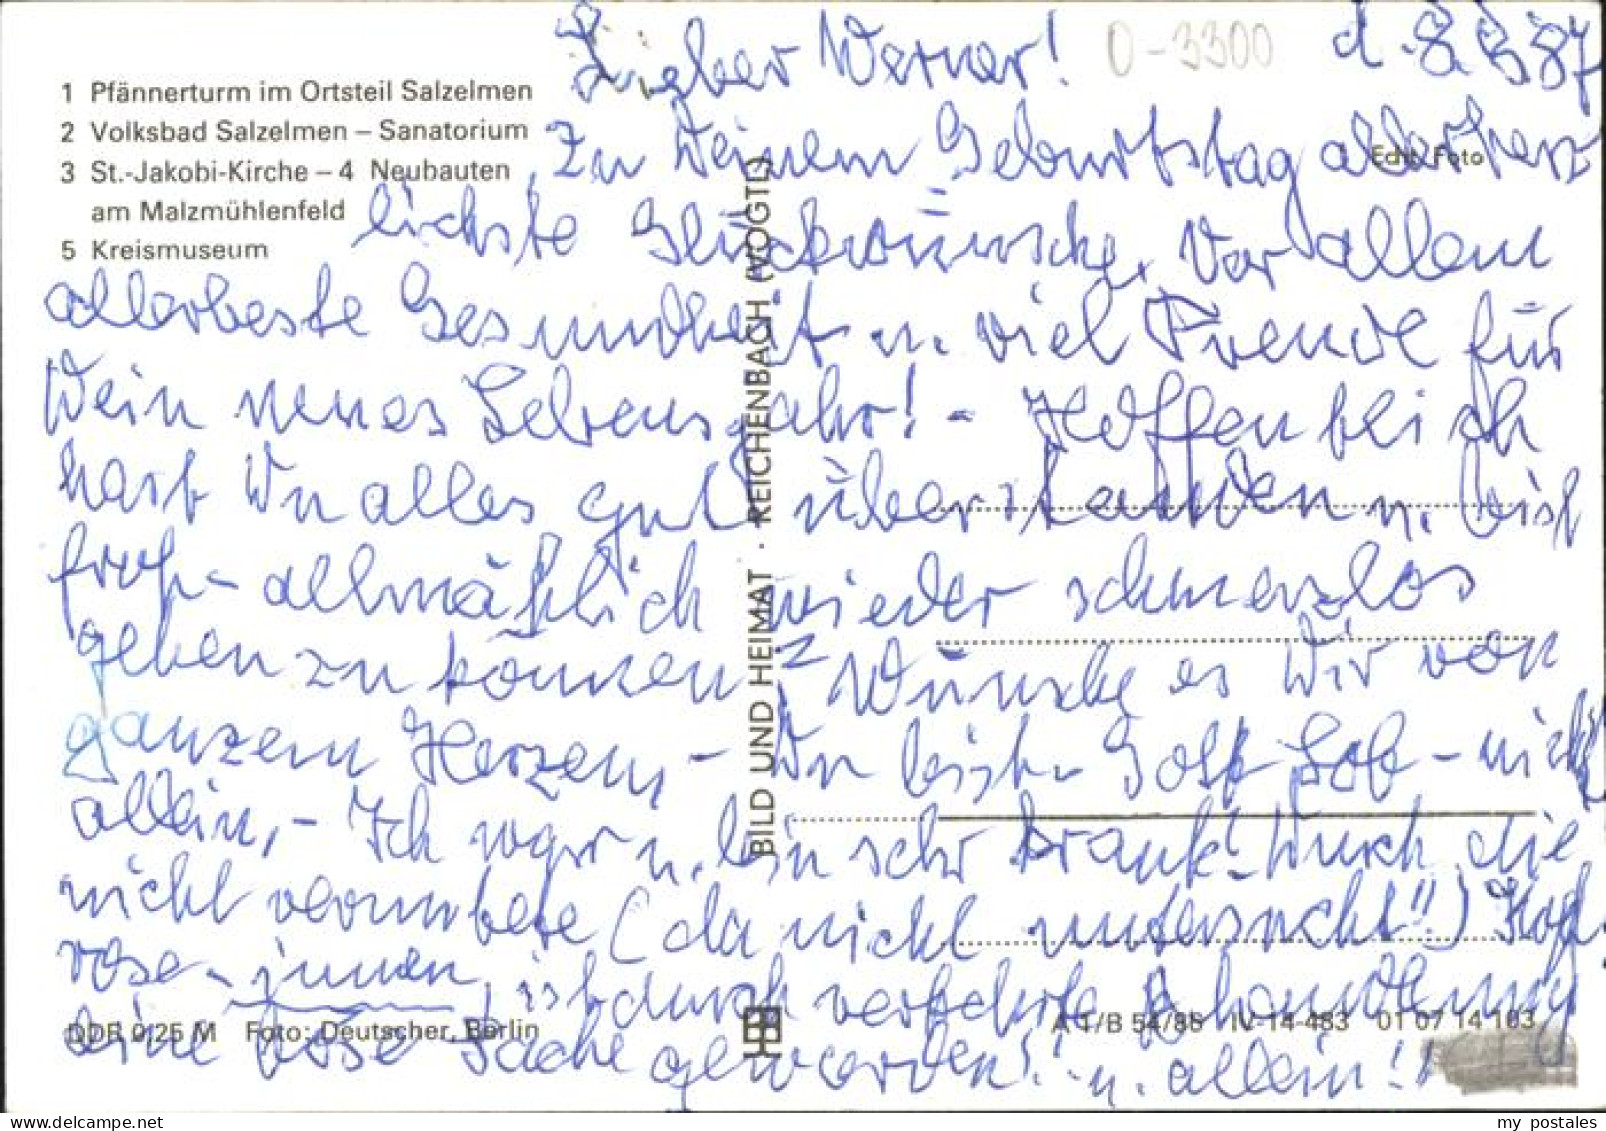 Lieber Werner! 0-3300 d. 8.3.87
1 Pfännerturm im Ortsteil Salzelmen
2 Volksbad Salzelmen – Sanatorium
3 St.-Jakobi-Kirche – 4 Neubauten
am Malzmühlenfeld
5 Kreismuseum
Echt Foto
Zu Deinem Geburtstag allerherz
lichste Glückwünsche. Vor allem
allerbeste Gesundheit u. viel Freude für
Dein neues Lebensjahr! - Hoffentlich
hast Du alles gut überstanden u. bist
froh - allmählich wieder schmerzlos
gehen zu können - Wünsche es Dir von
ganzem Herzen - Du bist - Gott Lob - nicht
allein, - Ich war u. bin sehr krank! Durch die
nicht vermutete (da nicht untersucht!!)
rose - innen, ist durch verkehrte Behandlung
eine böse Sache geworden! u. allein!!
BILD UND HEIMAT · REICHENBACH (VOGTL)
DDR 0,25 M Foto: Deutscher, Berlin
A 1/B 54/86 IV-14-483 01 07 14 163
my postales